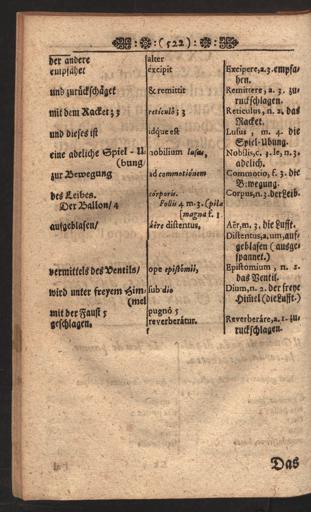 :(522):
der andere alter
empfähet excipit Excipere, a. 3. empfa-
hen.
und zurückschläget & remittit Remittere, a. 3. zu-
ruckschlagen.
mit dem Racket 3; reticulô; 3 Reticulus, n. 2. das
Racket.
und dieses ist idque est Lusus, m. 4. die
Spiel-Ubung.
eine adeliche Spiel-U- nobilium lusus, Nobilis, c. 3. le, n. 3.
(bung/ adelich.
zur Bewegung ad commotiónem Commotio, f. 3. die
Bewegung.
des Leibes. córporis. Corpus, n. 3. der Leib.
Der Ballon/ 4 Follis 4 m. 3. (pila
(magna f. 1
aufgeblasen/ áëre distentus, Aër, m. 3. die Lufft.
Distentus, a, um, auf-
geblasen (ausge-
spannet.)
vermittels des Ventils/ ope epistómii, Epistomium, n. 2.
das Ventil.
wird unter freyem Him- sub dio Dium, n. 2. der freye
(mel Him̃el (die Lufft.)
mit der Faust 5 pugnô 5
geschlagen. reverberátur. Reverberáre, a. 1. zu-
ruckschlagen.
Das